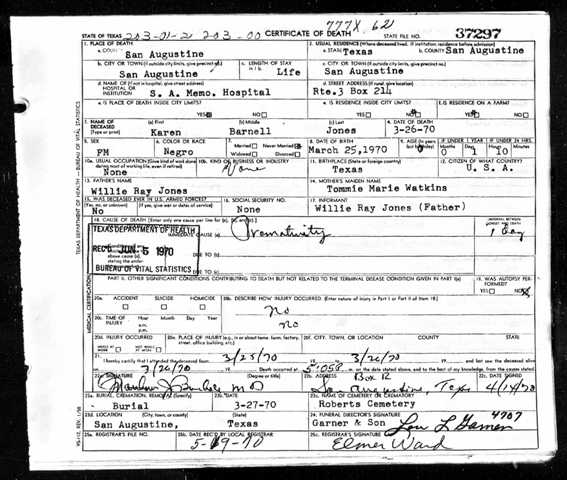 777X.62
STATE OF TEXAS 203-01-2 203-00 CERTIFICATE OF DEATH STATE FILE NO. 37297
1. PLACE OF DEATH 2. USUAL RESIDENCE (Where deceased lived. If institution: residence before admission)
San Augustine a. STATE Texas b. COUNTY San Augustine
b. CITY OR TOWN (If outside city limits, give precinct no.) c. LENGTH OF STAY c. CITY OR TOWN (If outside city limits, give precinct no.)
San Augustine Life San Augustine
d. NAME OF (If not in hospital, give street address) d. STREET ADDRESS (If rural, give location)
HOSPITAL OR INSTITUTION S. A. Memo. Hospital Rte.3 Box 214
e. IS PLACE OF DEATH INSIDE CITY LIMITS? e. IS RESIDENCE INSIDE CITY LIMITS? f. IS RESIDENCE ON A FARM?
YES NO YES NO YES NO
3. NAME OF DECEASED (Type or print) (a) First (b) Middle (c) Last 4. DATE OF DEATH
Karen Barnell Jones 3-26-70
5. SEX 6. COLOR OR RACE 7. Married Never Married 8. DATE OF BIRTH 9. AGE IF UNDER 1 YEAR IF UNDER 24 HRS.
FM Negro Widowed Divorced March 25,1970 0 1 10
10a. USUAL OCCUPATION (Give kind of work done 10b. KIND OF BUSINESS OR INDUSTRY 11. BIRTHPLACE (State or foreign country) 12. CITIZEN OF WHAT COUNTRY?
None None Texas U. S. A.
13. FATHER'S NAME 14. MOTHER'S MAIDEN NAME
Willie Ray Jones Tommie Marie Watkins
15. WAS DECEASED EVER IN U.S. ARMED FORCES? 16. SOCIAL SECURITY NO. 17. INFORMANT
No None Willie Ray Jones (Father)
18. CAUSE OF DEATH (Enter only one cause per line for (a), (b), and (c).)
TEXAS DEPARTMENT OF HEALTH Prematurity 1 Day
REC'D JUN 5 1970 DUE TO
BUREAU OF VITAL STATISTICS DUE TO
PART II. OTHER SIGNIFICANT CONDITIONS CONTRIBUTING TO DEATH BUT NOT RELATED TO THE TERMINAL DISEASE CONDITION GIVEN IN PART I(a) 19. WAS AUTOPSY PERFORMED?
YES NO
20a. ACCIDENT SUICIDE HOMICIDE 20b. DESCRIBE HOW INJURY OCCURRED. (Enter nature of injury in Part I or Part II of item 18.)
no
20c. TIME OF INJURY Hour Month Day Year
a.m.
p.m.
no
20d. INJURY OCCURRED 20e. PLACE OF INJURY (e.g., in or about home, farm, factory, street, office building, etc.) 20f. CITY, TOWN, OR LOCATION COUNTY STATE
WHILE AT WORK NOT WHILE AT WORK
21. I hereby certify that I attended the deceased from 3/25/70 19 to 3/26/70 19 and last saw the deceased alive
on 3/26/70 19 Death occurred at m. on the date stated above, and to the best of my knowledge, from the causes stated.
22a. SIGNATURE (Degree or title) 22b. ADDRESS Box R 22c. DATE SIGNED
M D San Augustine, Texas 4/14/70
23a. BURIAL, CREMATION, REMOVAL 23b. DATE 23c. NAME OF CEMETERY OR CREMATORY
Burial 3-27-70 Roberts Cemetery
23d. LOCATION (City, town, or county) (State) 24. FUNERAL DIRECTOR'S SIGNATURE 4707
San Augustine, Texas Garner & Son Lou L Garner
25a. REGISTRAR'S FILE NO. 25b. DATE REC'D BY LOCAL REGISTRAR 25c. REGISTRAR'S SIGNATURE
5-19-70 Elmer Ward
TEXAS DEPARTMENT OF HEALTH - BUREAU OF VITAL STATISTICS
MEDICAL CERTIFICATION